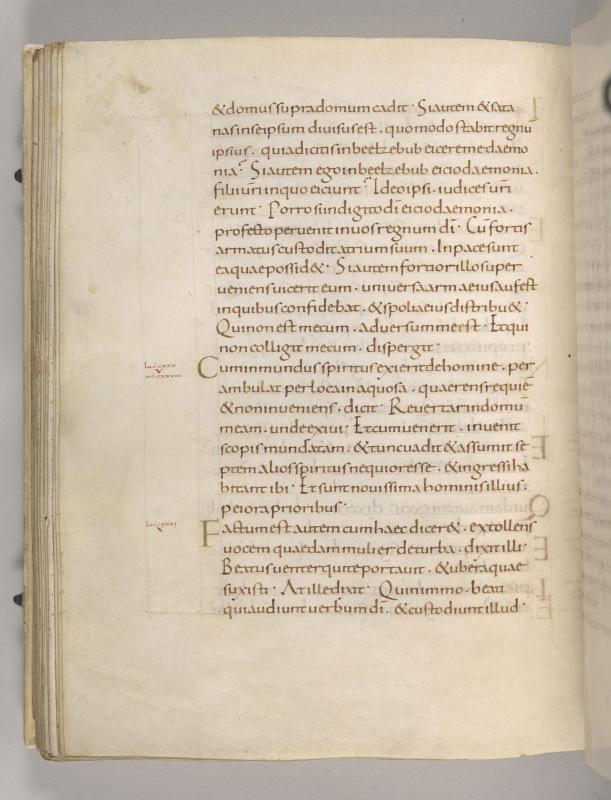 & domus supra domum cadit · Si autem & sata
nas in se ipsum diuisus est · quomodo stabit regnū
ipsius · quia dicitis in beelzebub eicere me daemo
nia · Si autem ego in beelzebub eicio daemonia ·
filii uri in quo eiciunt · Ideo ipsi · iudices uri
erunt · Porro si in digito di eicio daemonia ·
profecto peruenit in uos regnum di · Cū fortis
armatus custodit atrium suum · In pace sunt
ea quae possid& · Si autem fortior illo super
ueniens uicerit eum · uniuersa arma eius aufert
in quibus confidebat · & spolia eius distribu& ·
Qui non est mecum · aduersum me est · Et qui
non colligit mecum · dispergit ·
Cum inmundus spiritus exierit de homine · per
ambulat per loca inaquosa · quaerens requiē
& non inueniens · dicit · Reuertar in domū
meam · unde exiui · Et cum uenerit · inuenit
scopis mundatam · & tunc uadit & assumit se
ptem alios spiritus nequiores se · & ingressi ha
bitant ibi · Et sunt nouissima hominis illius ·
peiora prioribus ·
Factum est autem cum haec dicer& · extollens
uocem quaedam mulier de turba · dixit illi ·
Beatus uenter qui te portauit · & ubera quae
suxisti · At ille dixit · Quinimmo · beati
qui audiunt uerbum di · & custodiunt illud ·